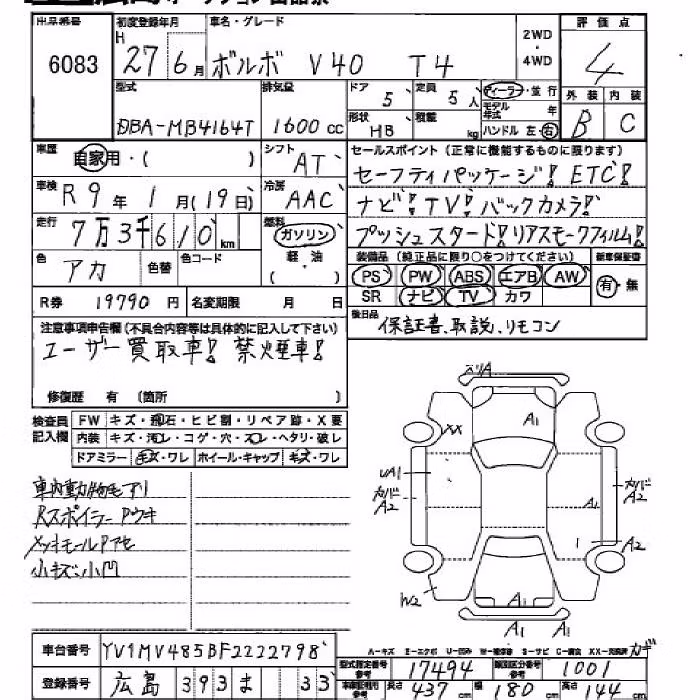 出品番号 初度登録年月 車名・グレード 評価点
6083 H 27 6月 ボルボ V40 T4 2WD・4WD 4
型式 排気量 ドア 5 定員 5人 ディーラー・並行 外装 内装
DBA-MB4164T 1600cc 形状 HB 積載 kg モデル年式 年 B C
ハンドル 左・右
車歴 自家用・( ) シフト AT セールスポイント(正常に機能するものに限ります)
セーフティパッケージ! ETC!
車検 R9年 1月(19日) 冷房 AAC ナビ! TV! バックカメラ!
走行 7万3千610km 燃料 ガソリン・軽油( ) プッシュスタート! リアスモークフィルム!
色 アカ 色替 色コード 装備品(純正品に限り○をつけてください) 新車保証書
PS PW ABS エアB AW 有・無
R券 19790円 名変期限 月 日 SR ナビ TV カワ
注意事項申告欄(不具合内容等は具体的に記入して下さい) 後日品 保証書、取説、リモコン
ユーザー買取車! 禁煙車!
修復歴 有(箇所 )
検査員記入欄 FW キズ・飛石・ヒビ割・リペア跡・X要
内装 キズ・汚レ・コゲ・穴・スレ・ヘタリ・破レ
ドアミラー キズ・ワレ ホイール・キャップ キズ・ワレ
車内動物毛アリ
Rスポイラー Pウキ
メッキモールPアセ
小キズ小凹
スリA
A1
XX
UA1
カバー A2
A1
カバー A2
A2
W2
A1 A1
A-キズ E-エクボ U-凹み W-補修跡 S-サビ C-腐食 XX-交換済 カギ
車台番号 YV1MV485BF2222798 型式指定番号参考 17494 類別区分番号参考 1001
登録番号 広島 393 ま 33 車庫証明用参考 長さ 437cm 幅 180cm 高さ 144cm